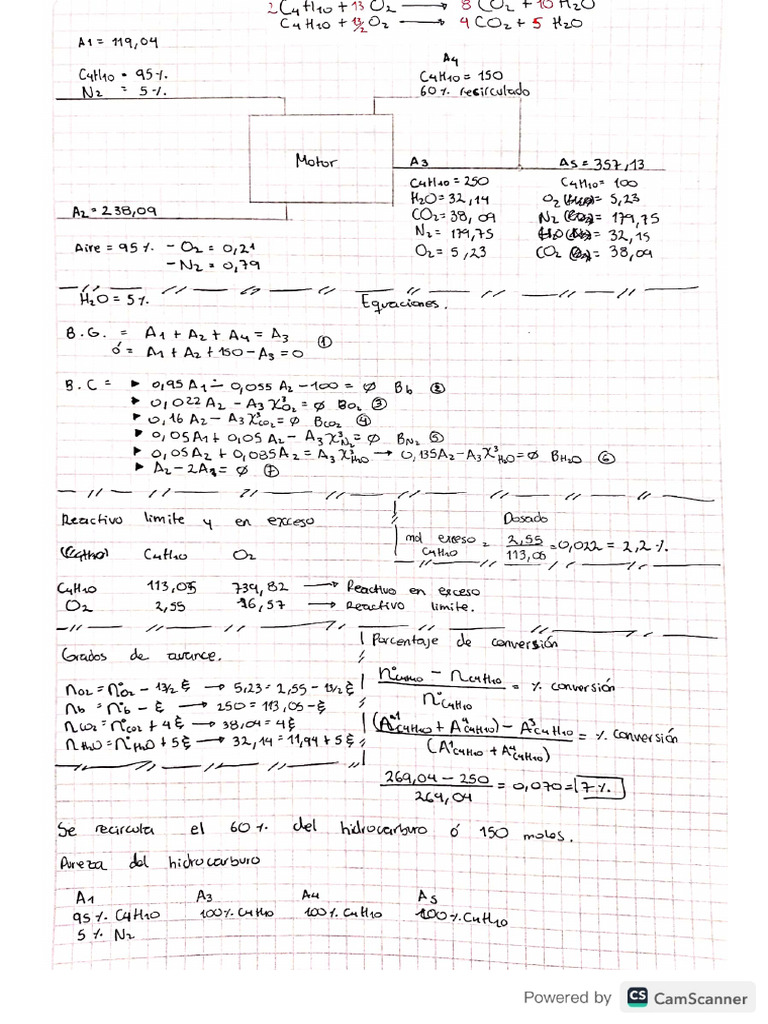 2C4H10 + 13 O2 → 8 CO2 + 10 H2O
C4H10 + 13/2 O2 → 4 CO2 + 5 H2O
A1 = 119,04
C4H10 = 95%.
N2 = 5%.
A4
C4H10 = 150
60% recirculado
Motor
A3
C4H10 = 250
H2O = 32,14
CO2 = 38,09
N2 = 179,75
O2 = 5,23
A5 = 357,13
C4H10 = 100
O2 = 5,23
N2 = 179,75
H2O = 32,15
CO2 = 38,09
A2 = 238,09
Aire = 95% - O2 = 0,21
- N2 = 0,79
H2O = 5%
Equaciones.
B.G. = A1 + A2 + A4 = A3 ①
ó = A1 + A2 + 150 - A3 = 0
B.C = ▸ 0,95 A1 - 0,055 A2 - 100 = ∅ Bb ②
▸ 0,022 A2 - A3 X³O2 = ∅ BO2 ③
▸ 0,16 A2 - A3 X³CO2 = ∅ BCO2 ④
▸ 0,05 A1 + 0,05 A2 - A3 X³N2 = ∅ BN2 ⑤
▸ 0,05 A2 + 0,085 A2 = A3 X³H2O → 0,135 A2 - A3 X³H2O = ∅ BH2O ⑥
▸ A2 - 2A1 = ∅ ⑦
Reactivo limite y en exceso
C4H10 O2
C4H10 113,05 739,82 → Reactivo en exceso
O2 2,55 16,57 → Reactivo limite.
Dosado
mol exceso C4H10 = 2,55 / 113,05 = 0,022 = 2,2%.
Grados de avance.
nO2 = n°O2 - 13/2 ξ → 5,23 = 2,55 - 13/2 ξ
nb = n°b - ξ → 250 = 113,05 - ξ
nCO2 = n°CO2 + 4ξ → 38,04 = 4ξ
nH2O = n°H2O + 5ξ → 32,14 = 11,94 + 5ξ
Porcentaje de conversión
n°C4H10 - nC4H10 / n°C4H10 = % conversión
(A¹C4H10 + A⁴C4H10) - A³C4H10 / (A¹C4H10 + A⁴C4H10) = % conversión
269,04 - 250 / 269,04 = 0,070 = 7%.
Se recircula el 60% del hidrocarburo ó 150 moles.
Pureza del hidrocarburo
A1 A3 A4 A5
95% C4H10 100% C4H10 100% C4H10 100% C4H10
5% N2
Powered by CS CamScanner